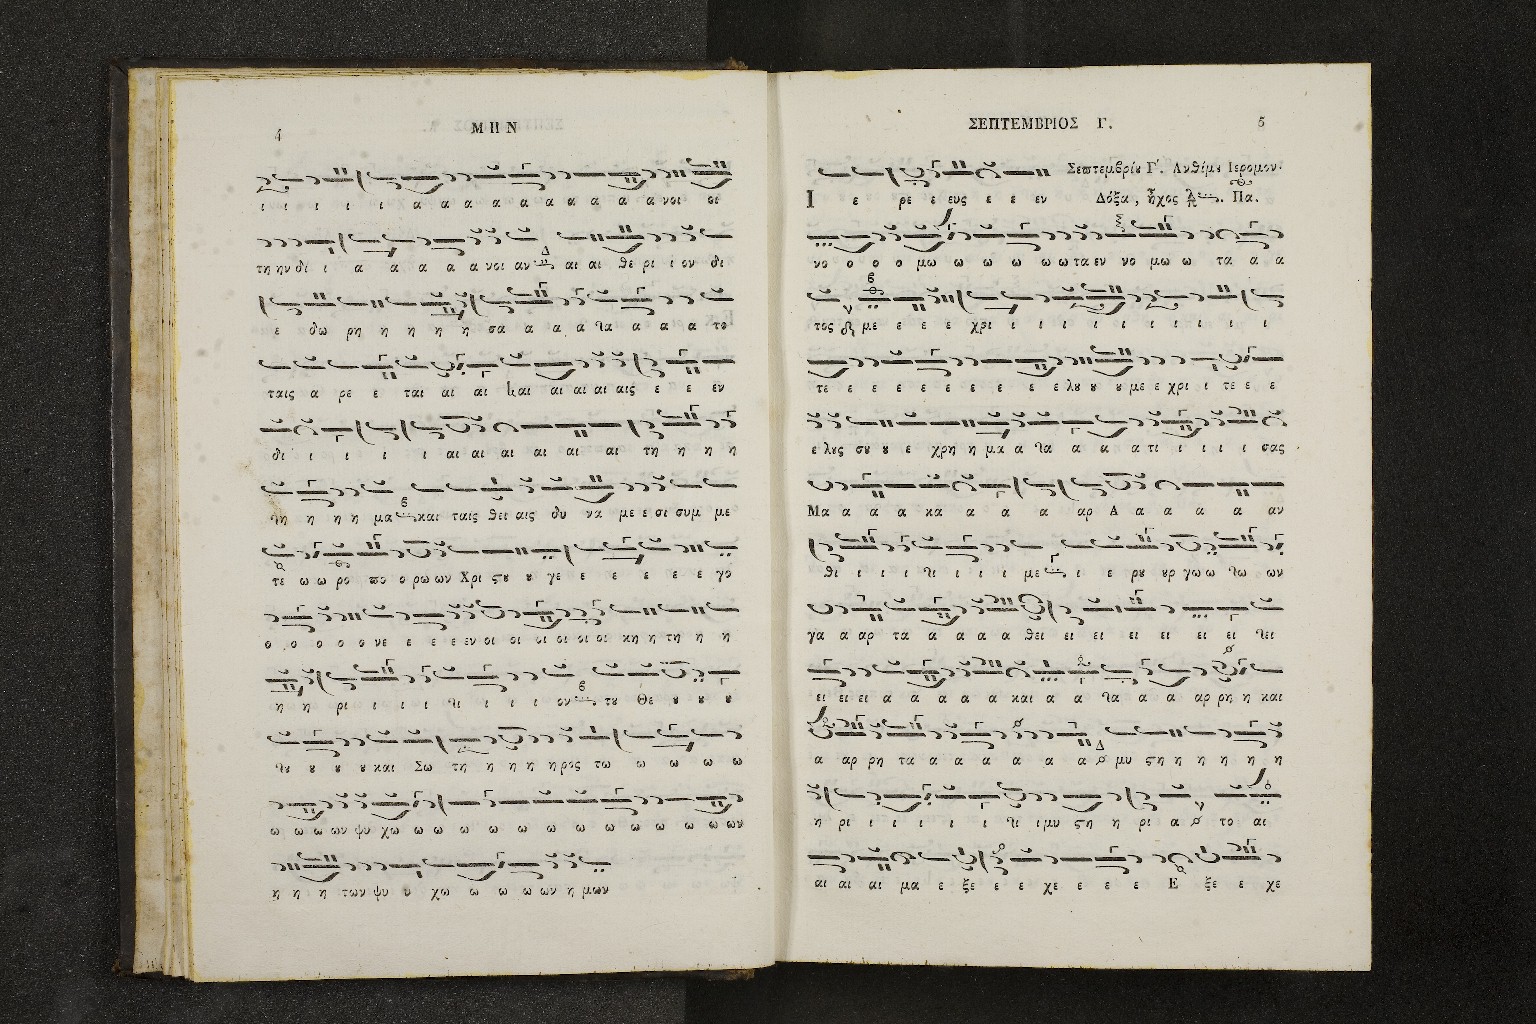 4
ΜΗΝ
ι ι ι ι ι α α α α α α α α α α νοι οι
τη ην δι ι α α α α α νοι αν αι αι θε ρι ι ον δι
ε δω ρη η η η η η σα α α α τα α α α το
ταις α ρε ε ται αι αι και αι αι αι αις ε ε εν
δι ι ι ι ι αι αι αι αι αι αι τη η η η
τη η η η μα και ταις θει αις δυ να με ε σι συμ με
τε ω ω ρο πο ο ρω ων Χρι ϛȣ ȣ γε ε ε ε ε ε ε γο
ο ο ο ο ο νε ε ε ε εν οι οι οι οι οι οι κη η τη η η
η η ρι ι ι ι τι ι ι ι ον τȣ Θε ȣ ȣ ȣ
τȣ ȣ ȣ ȣ και Σω τη η η η η ρος τω ω ω ω ω
ω ω ω ων ψυ χω ω ω ω ω ω ω ω ω ω ω ω ων
η η η των ψυ υ χω ω ω ω ων η μων
ΣΕΠΤΕΜΒΡΙΟΣ Γ.
5
Σεπτεμβρίȣ Γ΄. Ανθίμȣ Ιερομον.
Ι ε ρε ε ευς ε ε εν
Δόξα, ἦχος Πα.
νο ο ο ο μω ω ω ω ω ω τα εν νο μω ω τα α α
τος με ε ε ε χρι ι ι ι ι ι ι ι ι ι ι
τε ε ε ε ε ε ε ε ε ε λȣ ȣ ȣ με ε χρι ι τε ε ε
ε λȣς σȣ ȣ ε χρη η μα α τα α α α τι ι ι ι ι σας
Μα α α α κα α α α αρ Α α α α α αν
θι ι ι ι τι ι ι ι με ι ε ρȣ ȣρ γω ω τω ων
γα α αρ τα α α α α θει ει ει ει ει ει ει τει
ει ει ει α α α α α και α α τα α α αρ ρη η και
α αρ ρη τα α α α α α α μυ ϛη η η η η η
η ρι ι ι ι ι ι τι ι μυ ϛη η ρι α το αι
αι αι αι μα ε ξε ε ε χε ε ε ε Ε ξε ε χε